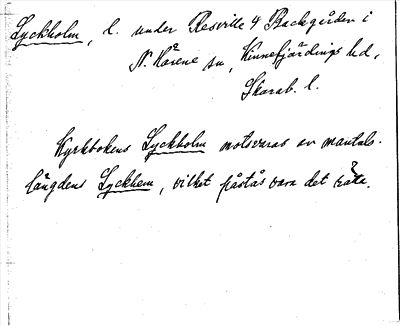 Lyckholm, l. under Resville 4 Backgården i
N. Härene sn, Kinnefjärdings hd,
Skarab. l.
Kyrkbokens Lyckholm motsvaras av mantals-
längdens Lyckhem, vilket påstås vara det rätta.